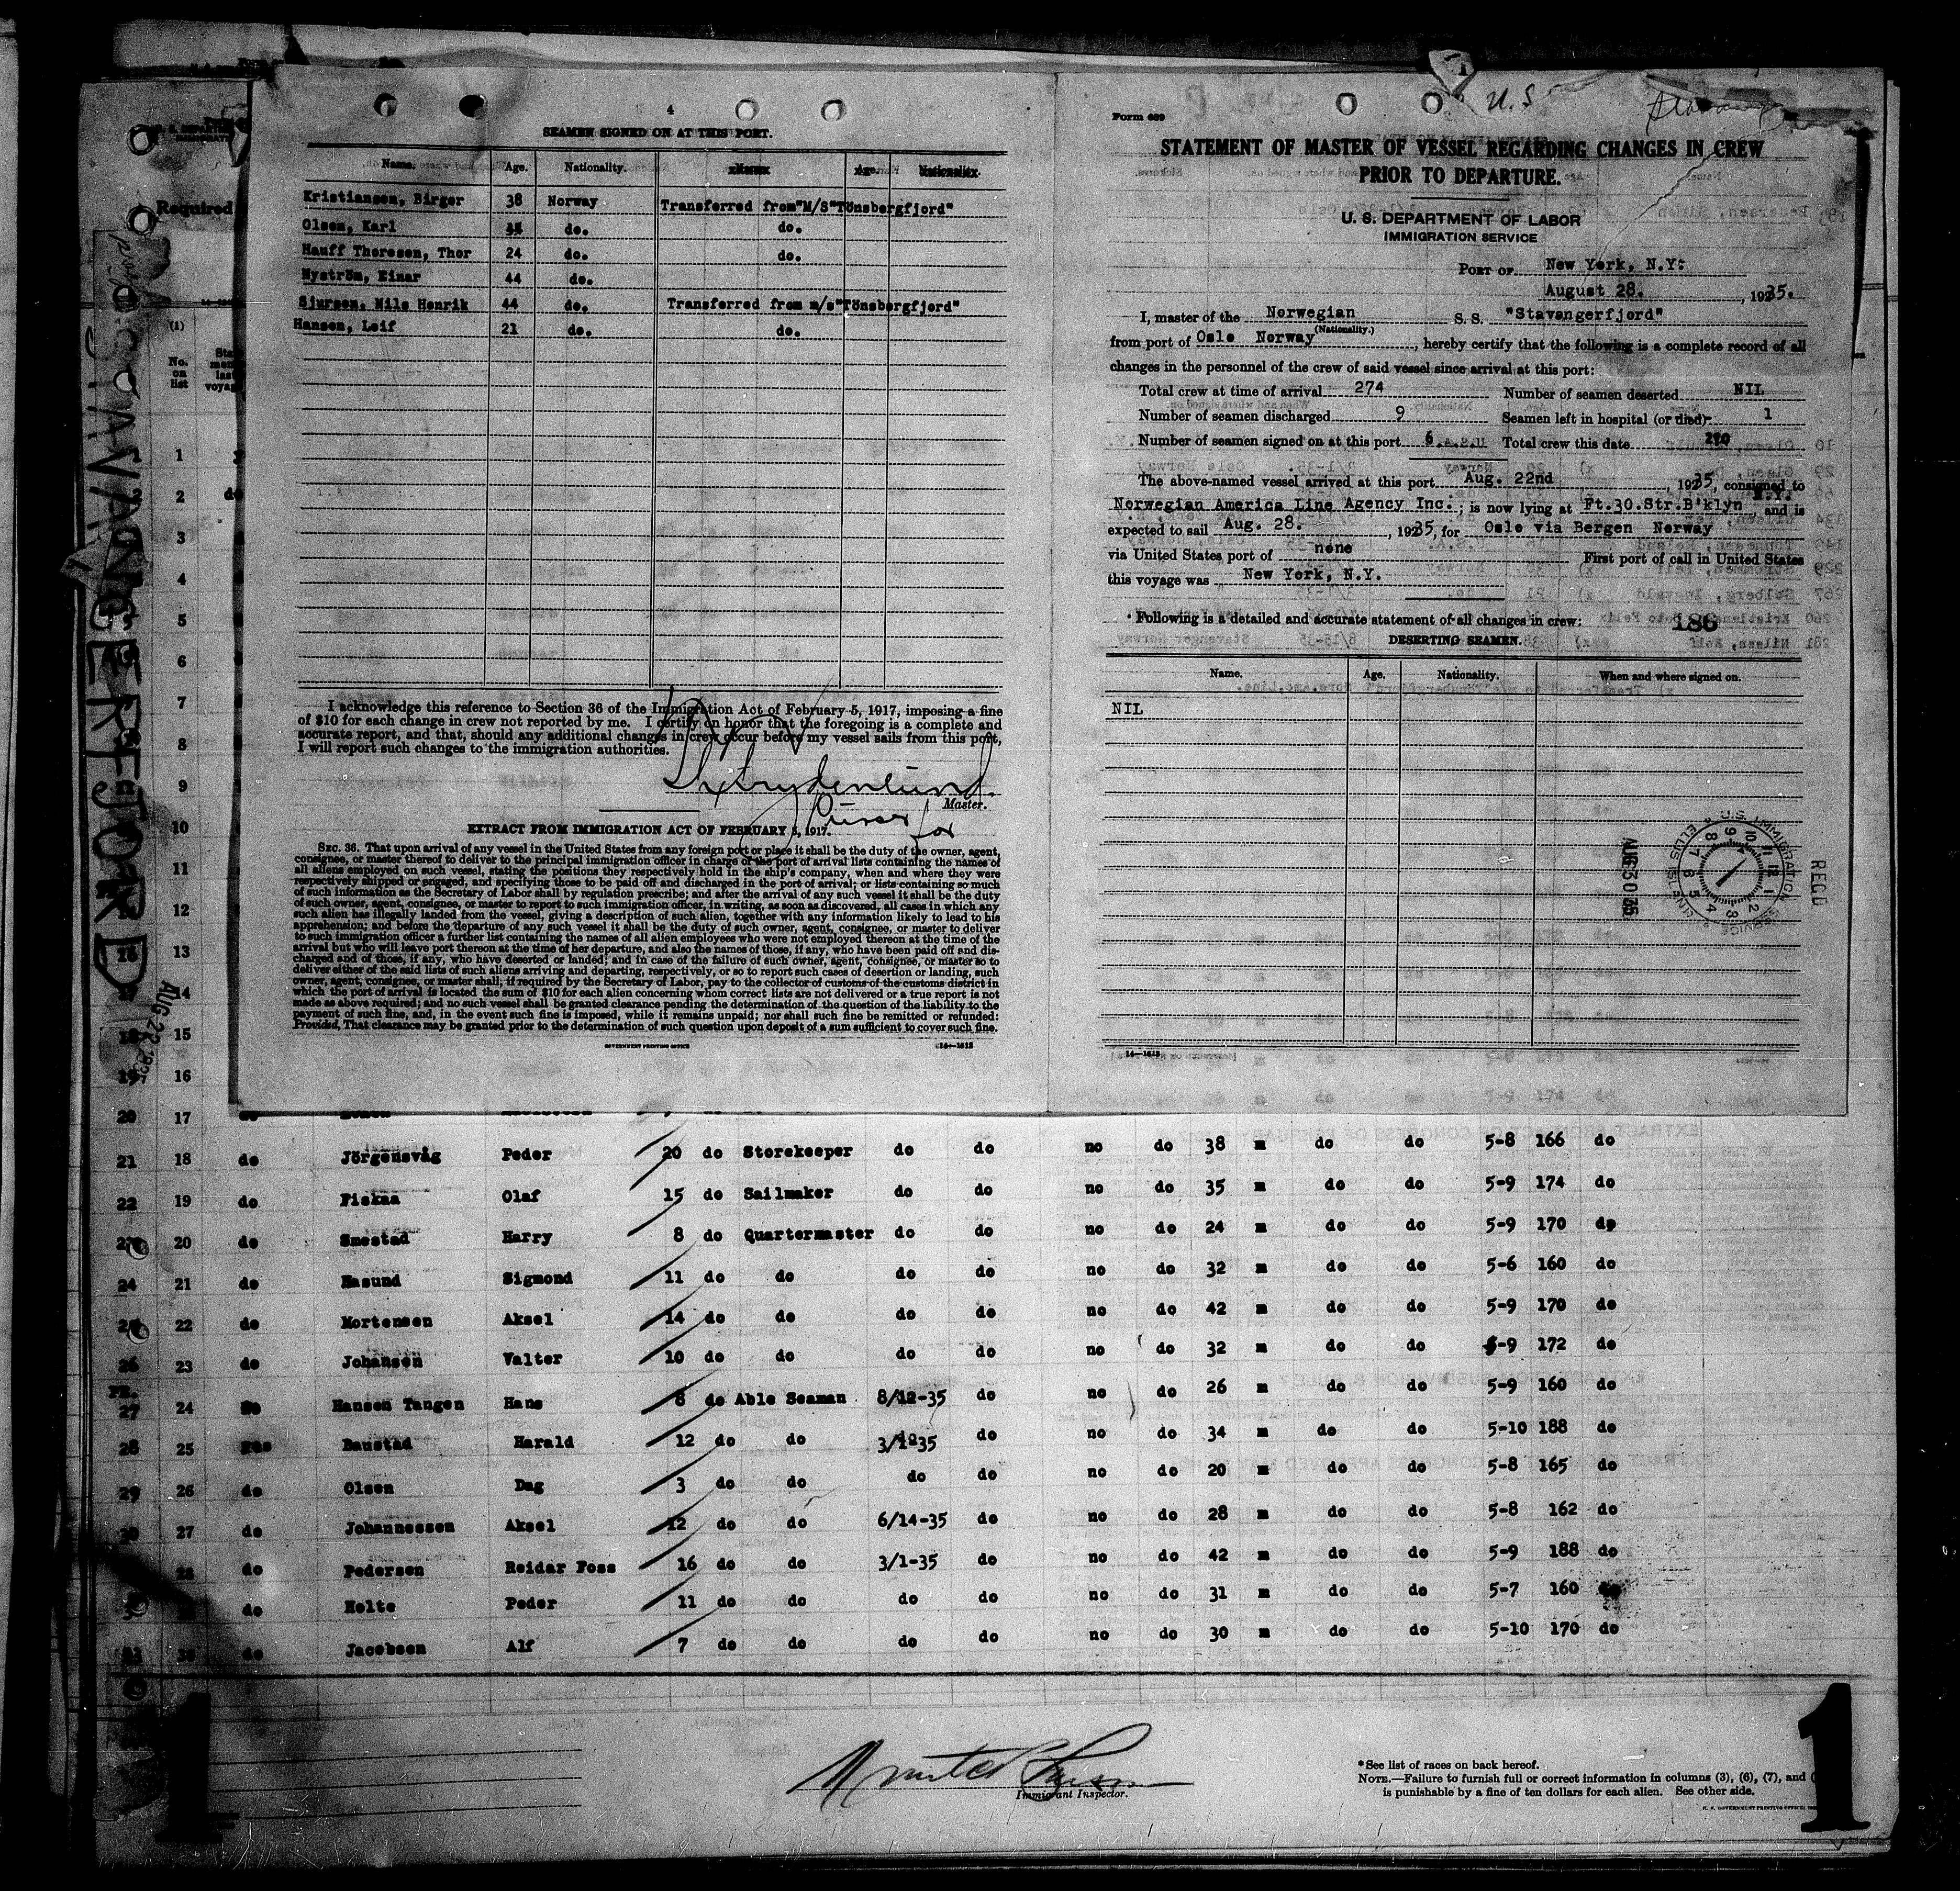 4
SEAMEN SIGNED ON AT THIS PORT.
Name. Age. Nationality. Name. Age. Nationality.
Kristiansen, Birger 38 Norway Transferred from "M/S "Tönsbergfjord"
Olsen, Karl do. do.
Hauff Thoresen, Thor 24 do. do.
Nyström, Einar 44 do.
Sjursen, Nils Henrik 44 do. Transferred from m/s "Tönsbergfjord"
Hansen, Leif 21 do. do.
I acknowledge this reference to Section 36 of the Immigration Act of February 5, 1917, imposing a fine
of $10 for each change in crew not reported by me. I certify on honor that the foregoing is a complete and
accurate report, and that, should any additional changes in crew occur before my vessel sails from this port,
I will report such changes to the immigration authorities.
Master.
Purser for
EXTRACT FROM IMMIGRATION ACT OF FEBRUARY 5, 1917.
SEC. 36. That upon arrival of any vessel in the United States from any foreign port or place it shall be the duty of the owner, agent,
consignee, or master thereof to deliver to the principal immigration officer in charge of the port of arrival lists containing the names of
all aliens employed on such vessel, stating the positions they respectively hold in the ship's company, when and where they were
respectively shipped or engaged, and specifying those to be paid off and discharged in the port of arrival; or lists containing so much
of such information as the Secretary of Labor shall by regulation prescribe; and after the arrival of any such vessel it shall be the duty
of such owner, agent, consignee, or master to report to such immigration officer, in writing, as soon as discovered, all cases in which any
such alien has illegally landed from the vessel, giving a description of such alien, together with any information likely to lead to his
apprehension; and before the departure of any such vessel it shall be the duty of such owner, agent, consignee, or master to deliver
to such immigration officer a further list containing the names of all alien employees who were not employed thereon at the time of the
arrival but who will leave port thereon at the time of her departure, and also the names of those, if any, who have been paid off and dis-
charged and of those, if any, who have deserted or landed; and in case of the failure of such owner, agent, consignee, or master so to
deliver either of the said lists of such aliens arriving and departing, respectively, or so to report such cases of desertion or landing, such
owner, agent, consignee, or master shall, if required by the Secretary of Labor, pay to the collector of customs of the customs district in
which the port of arrival is located the sum of $10 for each alien concerning whom correct lists are not delivered or a true report is not
made as above required; and no such vessel shall be granted clearance pending the determination of the question of the liability to the
payment of such fine, and, in the event such fine is imposed, while it remains unpaid; nor shall such fine be remitted or refunded:
Provided, That clearance may be granted prior to the determination of such question upon deposit of a sum sufficient to cover such fine.
GOVERNMENT PRINTING OFFICE 14—1613
U.S
Form 689
STATEMENT OF MASTER OF VESSEL REGARDING CHANGES IN CREW
PRIOR TO DEPARTURE.
U. S. DEPARTMENT OF LABOR
IMMIGRATION SERVICE
PORT OF New York, N.Y.
August 28. , 1935.
I, master of the Norwegian S. S. "Stavangerfjord"
(Nationality.)
from port of Oslo Norway , hereby certify that the following is a complete record of all
changes in the personnel of the crew of said vessel since arrival at this port:
Total crew at time of arrival 274 Number of seamen deserted NIL
Number of seamen discharged 9 Seamen left in hospital (or died) 1
Number of seamen signed on at this port 6 Total crew this date 270
The above-named vessel arrived at this port Aug. 22nd , 1935, consigned to
Norwegian America Line Agency Inc. ; is now lying at Ft.30.Str.B'klyn N.Y. , and is
expected to sail Aug. 28. , 1935, for Oslo via Bergen Norway
via United States port of none First port of call in United States
this voyage was New York, N.Y.
Following is a detailed and accurate statement of all changes in crew: 186
DESERTING SEAMEN.
Name. Age. Nationality. When and where signed on.
NIL
REC'D
U.S. IMMIGRATION SERVICE ELLIS ISLAND
AUG 30 1935
14—1613
Required
STAVANGERFJORD
AUG 22 1935
(1)
No.
on
list
1
2
3
4
5
6
7
8
9
10
11
12
13
14
15
19 16
20 17 do
21 18 do Jörgensvåg Peder 20 do Storekeeper do do no do 38 m do do 5-8 166 do
22 19 do Fiskaa Olaf 15 do Sailmaker do do no do 35 m do do 5-9 174 do
20 do Smestad Harry 8 do Quartermaster do do no do 24 m do do 5-9 170 do
24 21 do Hasund Sigmond 11 do do do do no do 32 m do do 5-6 160 do
22 do Mortensen Aksel 14 do do do do no do 42 m do do 5-9 170 do
26 23 do Johansen Valter 10 do do do do no do 32 m do do 5-9 172 do
27 24 Hansen Tangen Hans 8 do Able Seaman 8/12-35 do no do 26 m do do 5-9 160 do
28 25 Baustad Harald 12 do do 3/1-35 do no do 34 m do do 5-10 188 do
29 26 do Olsen Dag 3 do do do do no do 20 m do do 5-8 165 do
30 27 do Johannessen Aksel 12 do do 6/14-35 do no do 28 m do do 5-8 162 do
28 do Pedersen Reidar Foss 16 do do 3/1-35 do no do 42 m do do 5-9 188 do
do Holte Peder 11 do do do do no do 31 m do do 5-7 160 do
do Jacobsen Alf 7 do do do do no do 30 m do do 5-10 170 do
Immigrant Inspector.
*See list of races on back hereof.
NOTE.—Failure to furnish full or correct information in columns (3), (6), (7), and
is punishable by a fine of ten dollars for each alien. See other side.
1
1